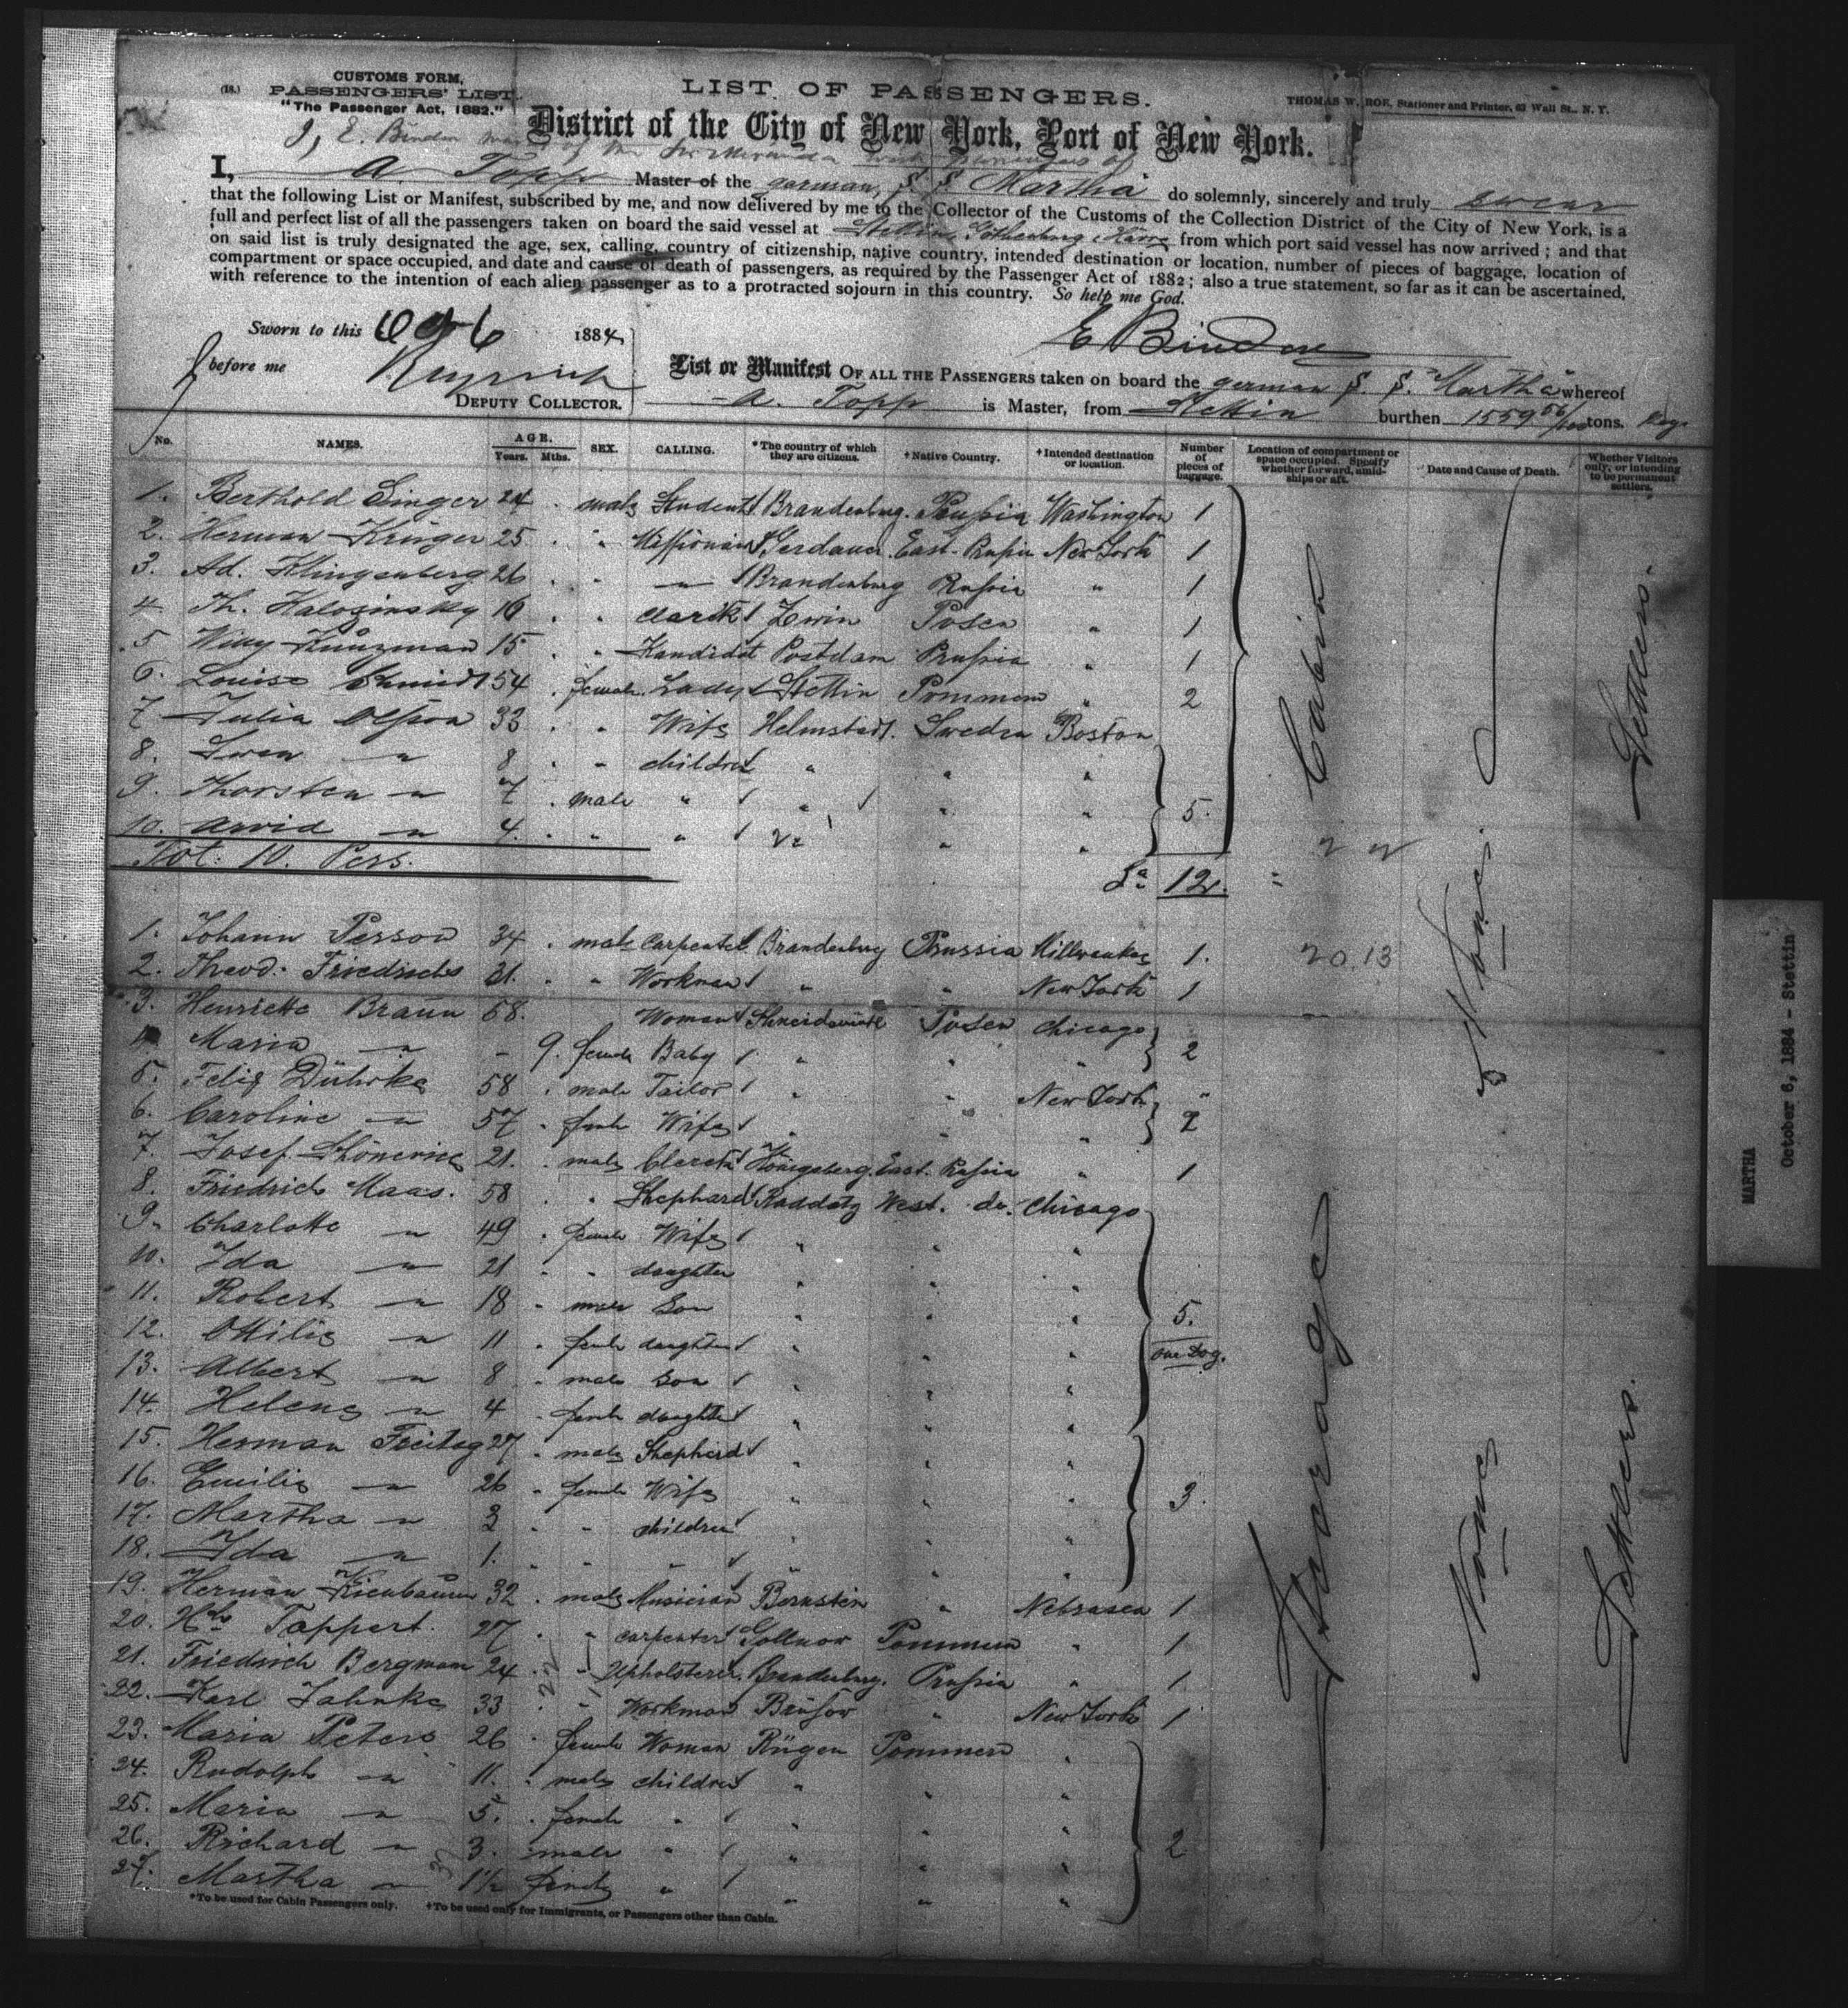 (18.) CUSTOMS FORM,
PASSENGERS' LIST.
"The Passenger Act, 1882."
LIST OF PASSENGERS.
THOMAS W. ROE, Stationer and Printer, 62 Wall St., N. Y.
District of the City of New York, Port of New York.
I, E. Binder
I, A. Topp Master of the german S. S. Martha do solemnly, sincerely and truly swear
that the following List or Manifest, subscribed by me, and now delivered by me to the Collector of the Customs of the Collection District of the City of New York, is a
full and perfect list of all the passengers taken on board the said vessel at Stettin Gothenburg from which port said vessel has now arrived; and that
on said list is truly designated the age, sex, calling, country of citizenship, native country, intended destination or location, number of pieces of baggage, location of
compartment or space occupied, and date and cause of death of passengers, as required by the Passenger Act of 1882; also a true statement, so far as it can be ascertained,
with reference to the intention of each alien passenger as to a protracted sojourn in this country. So help me God.
Sworn to this Oct 6 1884
E Binder
before me
DEPUTY COLLECTOR.
List or Manifest OF ALL THE PASSENGERS taken on board the german S. S. "Martha" whereof
A. Topp is Master, from Stettin burthen 1559 56/100 tons.
No. NAMES. AGE. Years. Mths. SEX. CALLING. *The country of which they are citizens. †Native Country. †Intended destination or location. Number of pieces of baggage. Location of compartment or space occupied. Specify whether forward, amidships or aft. Date and Cause of Death. Whether Visitors only, or intending to be permanent settlers.
1. Berthold Singer 24 . male Student Brandenburg. Prussia Washington 1
2. Herman Krüger 25 . " Missionair Gerdauen East-Prussia New York 1
3. Ad. Klingenberg 26 . " " Brandenburg Prussia " 1
4. Th. 16 . " Clark Posen " 1
5. Willy Künzman 15 . " Kandidat Postdam Prussia " 1
6. Louise Schmidt 54 . female Lady Stettin Pommern " 2
7. Julia Olsson 33 . " Wife Helmstadt. Sweden Boston
8. Swen " 8 . " children " " "
9. Thorsten " 7 . male " " " " 5.
10. Arvid " 4. . " " " "
Tot: 10. Pers.
Sa 12.
Cabin
None.
Settlers.
1. Johann Persow 34 . male Carpenter Brandenburg Prussia Millwaukee 1.
2. Theod. Friedrichs 31. . " Workman " " New York 1
3. Henriette Braun 58. Woman Posen Chicago
4. Maria " - 9. female Baby " " " 2
5. Felix Dührke 58 . male Tailor " " New York "
6. Caroline " 57 . female Wife " " " 2
7. Josef 21. . male Clerck Königsberg. East. Prussia " 1
8. Friedrich Maas. 58 . " Shephard Raddatz West. do. Chicago
9. Charlotte " 49 . female Wife " " "
10. Ida " 21 . " daughter " " "
11. Robert " 18 . male Son " " " 5.
12. Ottilie " 11 . female daughter " " " one Dog.
13. Albert " 8 . male Son " " "
14. Helene " 4 . female daughter " " "
15. Herman Freitag 27 . male Shepherd " " "
16. Emilie " 26 . female Wife " " " 3.
17. Martha " 3 . " children " " "
18. Ida " 1. . " " " " "
19. Herman Kienbaum 32 . male Musician Bernstein " Nebrasca 1
20. Tappert. 27 . " carpenter Gollnow Pommern " 1
21. Friedrich Bergmann 24 . " Upholsterer. Brandenburg. Prussia " 1
22. Karl Jahnke 33 . " Workman Brüssow " New York 1
23. Maria Peters 26 . female Woman Rügen Pommern "
24. Rudolph " 11. . male children " " "
25. Maria " 5. . female " " " "
26. Richard " 3. . male " " " " 2
27. Martha " 1½ female " " " "
Steerage
None
Settlers.
*To be used for Cabin Passengers only. †To be used only for Immigrants, or Passengers other than Cabin.
MARTHA
October 6, 1884 - Stettin